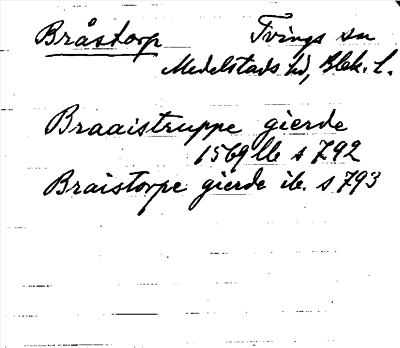 Bråstorp Tvings sn
Medelstads hd, Blek. l.
Braaistruppe gierde
1569 llb s 792
Braistorpe gierde ib. s 793